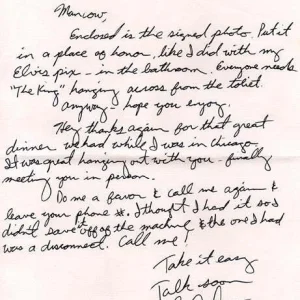 Mancow,
Enclosed is the signed photo. Put it
in a place of honor, like I did with my
Elvis pix - in the bathroom. Everyone needs
"The King" hanging across from the toliet.
anyway - hope you enjoy.
Hey thanks again for that great
dinner we had while I was in Chicago
It was great hanging out with you - finally
meeting you in person.
Do me a favor & call me again &
leave your phone #. I thought I had it so I
didn't save it off of the machine & the one I had
was a disconnect. Call me!
Take it easy
Talk soon